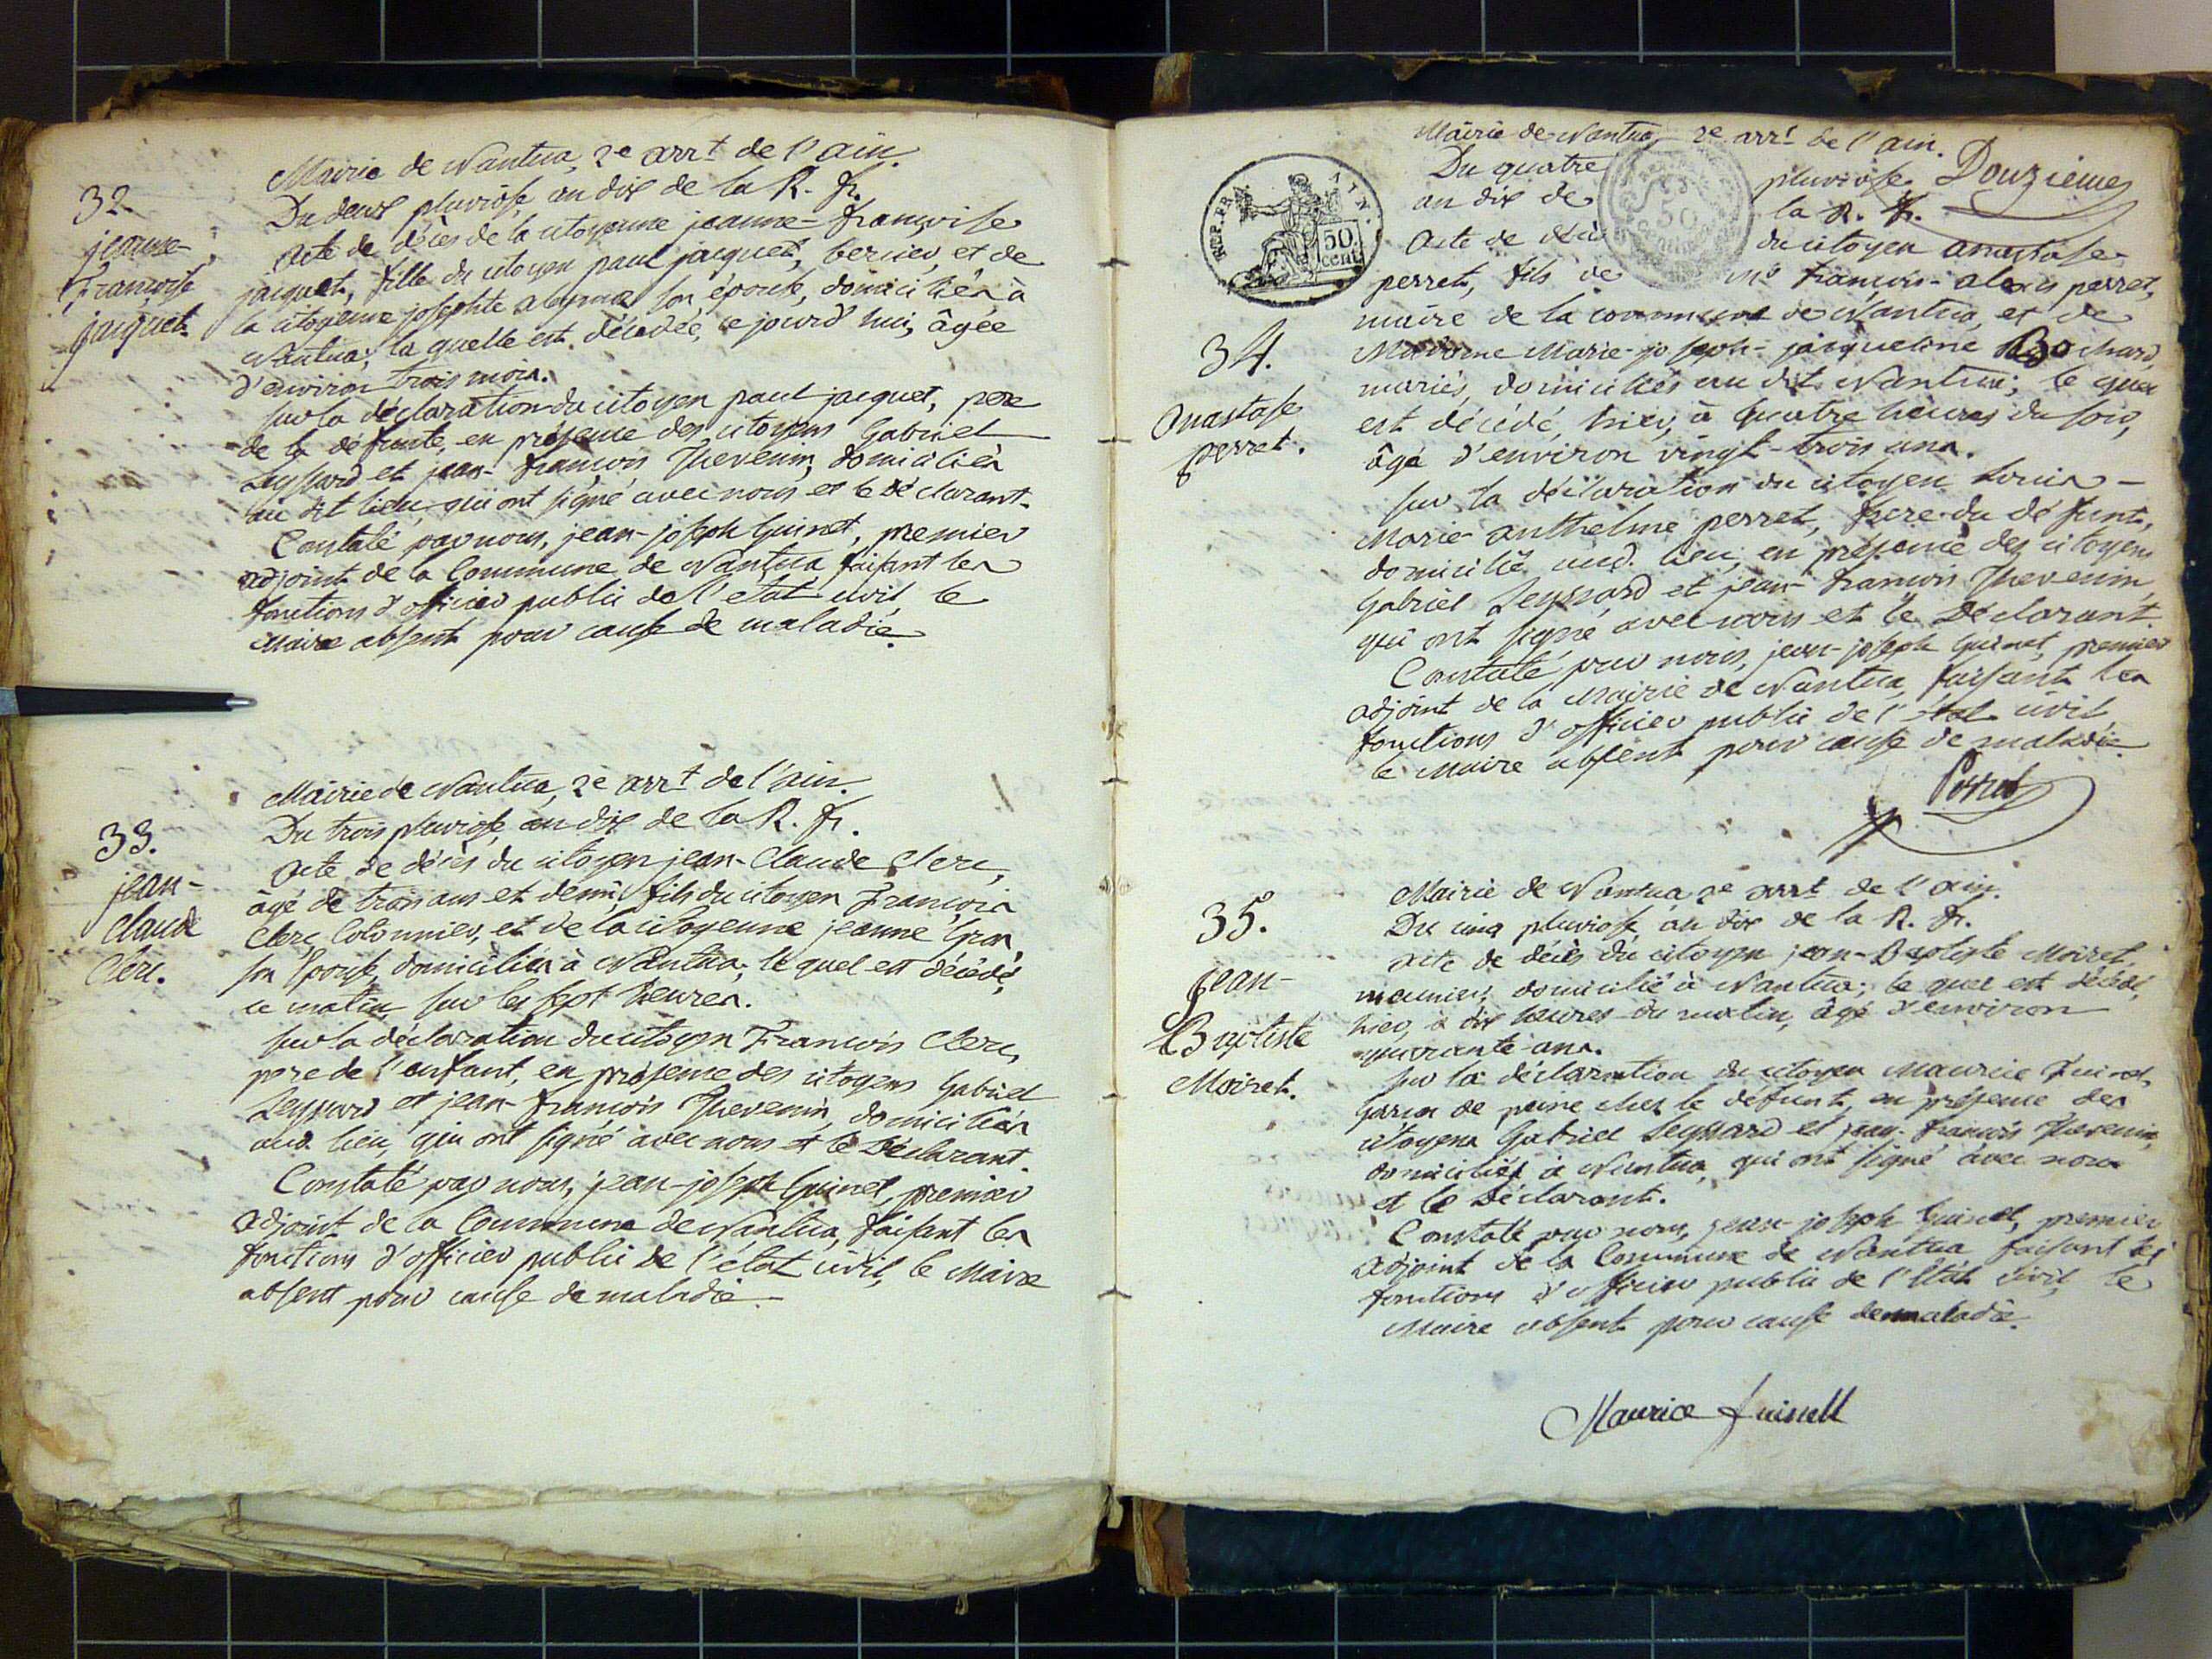 Mairie de Nantua, 2e arrt de l'ain.
32.
Du deux pluviôse, an dix de la R. fr.
jeanne-
françoise
jacquet.
acte de décès de la citoyenne jeanne-françoise
jacquet, fille du citoyen paul jacquet, berger, et de
la citoyenne josephte son épouse, domiciliés à
Nantua; la quelle est décédée, ce jourd'hui, âgée
d'environ trois mois.
sur la déclaration du citoyen paul jacquet, pere
de la défunte, en présence des citoyens Gabriel
Seyssard et jean-françois Thevenin, domiciliés
au dit lieu, qui ont signé avec nous et le déclarant.
Constaté par nous, jean-joseph Guinet, premier
adjoint de la Commune de Nantua faisant les
fonctions d'officier public de l'etat civil, le
Maire absent pour cause de maladie.
Mairie de Nantua, 2e arrt de l'ain.
33.
Du trois pluviôse, an dix de la R. fr.
jean-
Claude
Clerc.
acte de décès du citoyen jean-Claude Clerc,
âgé de trois ans et demi, fils du citoyen François
Clerc, Cotonnier, et de la citoyenne jeanne
son Epouse, domiciliés à Nantua; le quel est décédé,
ce matin, sur les sept heures.
sur la déclaration du citoyen François Clerc,
pere de l'enfant, en présence des citoyens Gabriel
Seyssard et jean-françois Thevenin, domiciliés
aud. lieu, qui ont signé avec nous et le Déclarant.
Constaté par nous, jean-joseph Guinet, premier
adjoint de la Commune de Nantua, faisant les
fonctions d'officier public de l'état civil, le Maire
absent pour cause de maladie.
Mairie de Nantua, 2e arrt de l'ain.
Douzieme
REP. FRA.
50.
cent.
50
Du quatre pluviôse
an dix de la R. fr.
acte de décès du citoyen anastase
perret, fils de Me françois-alexis perret,
maire de la commune de Nantua, et de
34.
Anastase
perret.
Madame Marie-joseph-jacqueline Bochard,
mariés, domiciliés au dit Nantua; le quel
est décédé, hier, à quatre heures du soir,
âgé d'environ vingt-trois ans.
sur la déclaration du citoyen Louis-
Marie-anthelme perret, frere du défunt,
domicilié aud. lieu, en présence des citoyens
Gabriel Seyssard et jean-françois Thevenin,
qui ont signé avec nous et le Déclarant.
Constaté par nous, jean-joseph Guinet, premier
adjoint de la Mairie de Nantua, faisant les
fonctions d'officier public de l'etat civil,
le Maire absent pour cause de maladie
Perret
Mairie de Nantua 2e arrt de l'ain.
35.
Du cinq pluviôse an dix de la R. fr.
jean-
Baptiste
Moiret.
acte de décès du citoyen jean-Baptiste Moiret,
meunier, domicilié à Nantua; le quel est décédé,
hier, à dix heures du matin, âgé d'environ
quarante ans.
sur la déclaration du citoyen Maurice
garçon de peine chez le défunt, en présence des
citoyens Gabriel Seyssard et jean-françois Thevenin,
domiciliés à Nantua, qui ont signé avec nous
et le Déclarant.
Constaté par nous, jean-joseph Guinet, premier
adjoint de la Commune de Nantua faisant les
fonctions d'officier public de l'Etat civil, le
Maire absent pour cause de maladie.
Maurice